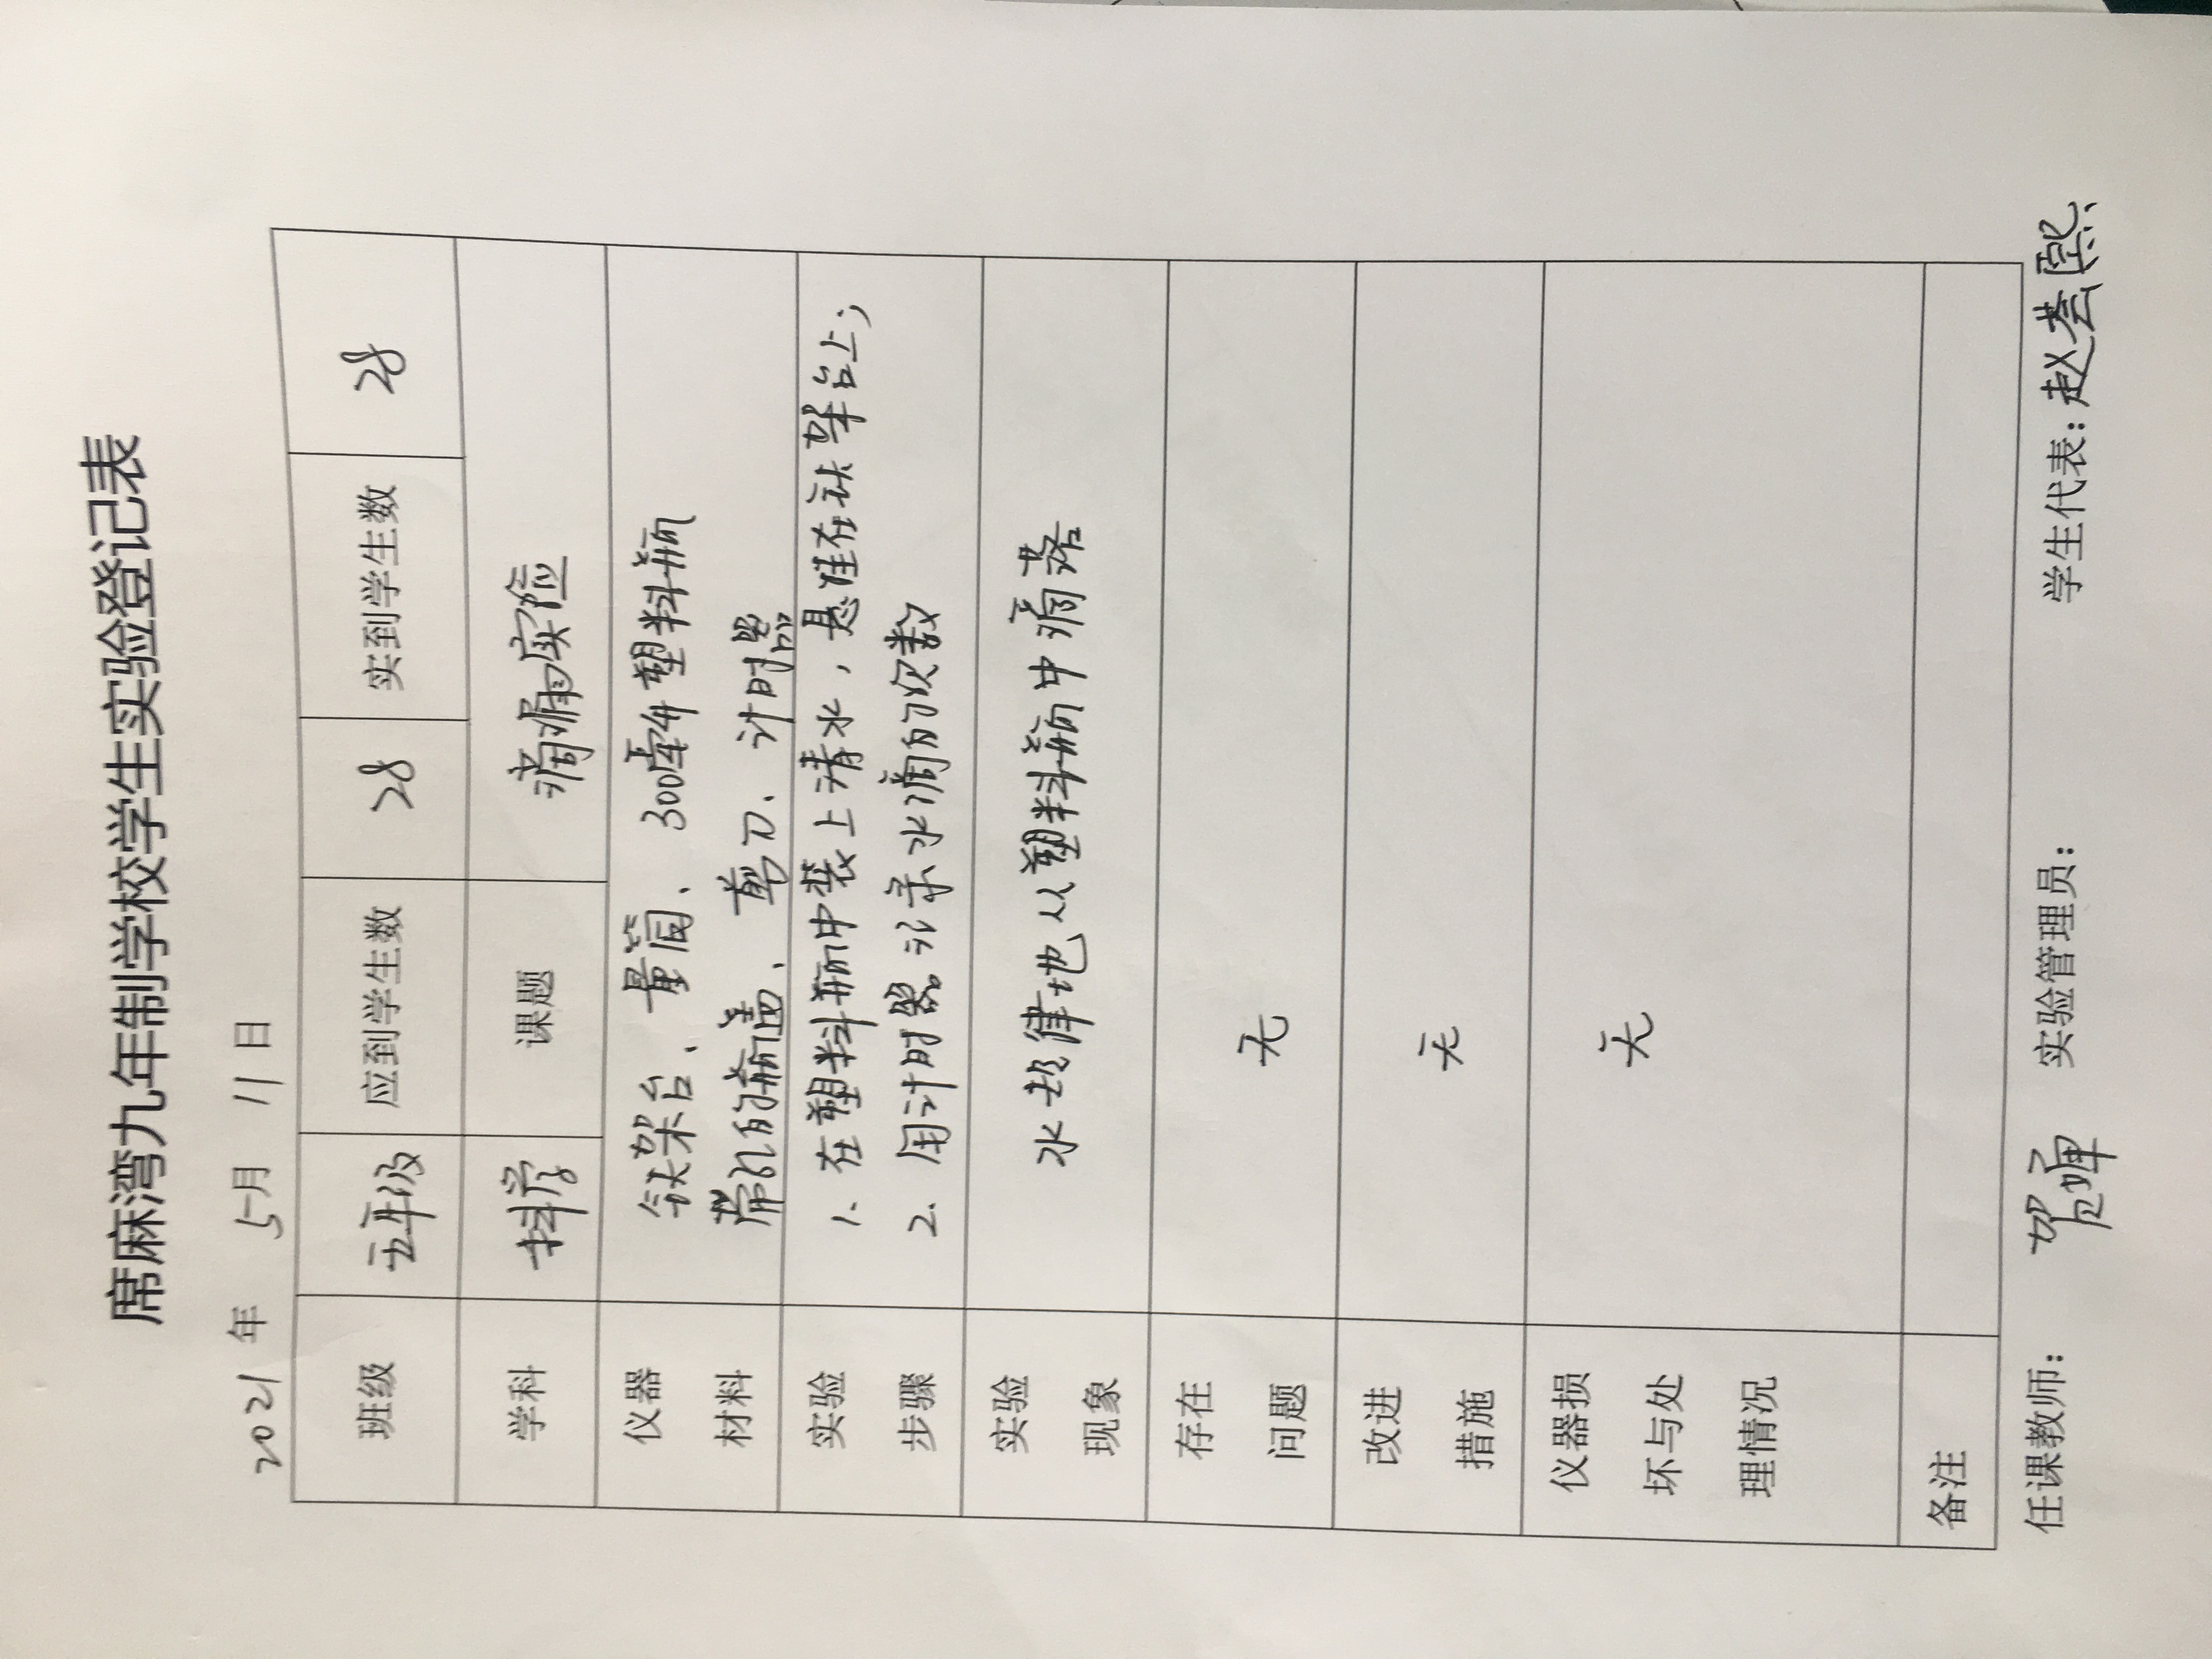 席麻湾九年制学校学生实验登记表
2021 年 5 月 11 日
班级 五年级 应到学生数 28 实到学生数 28
学科 科学 课题 滴漏实验
仪器 铁架台、量筒、300毫升塑料瓶
材料 带孔的瓶盖、剪刀、计时器
实验 1. 在塑料瓶中装上清水，悬挂在铁架台上；
步骤 2. 用计时器记录水滴的次数
实验
现象 水 律地从塑料瓶中滴落
存在
问题 无
改进
措施 无
仪器损
坏与处 无
理情况
备注
任课教师： 贺 实验管理员： 学生代表：赵 熙